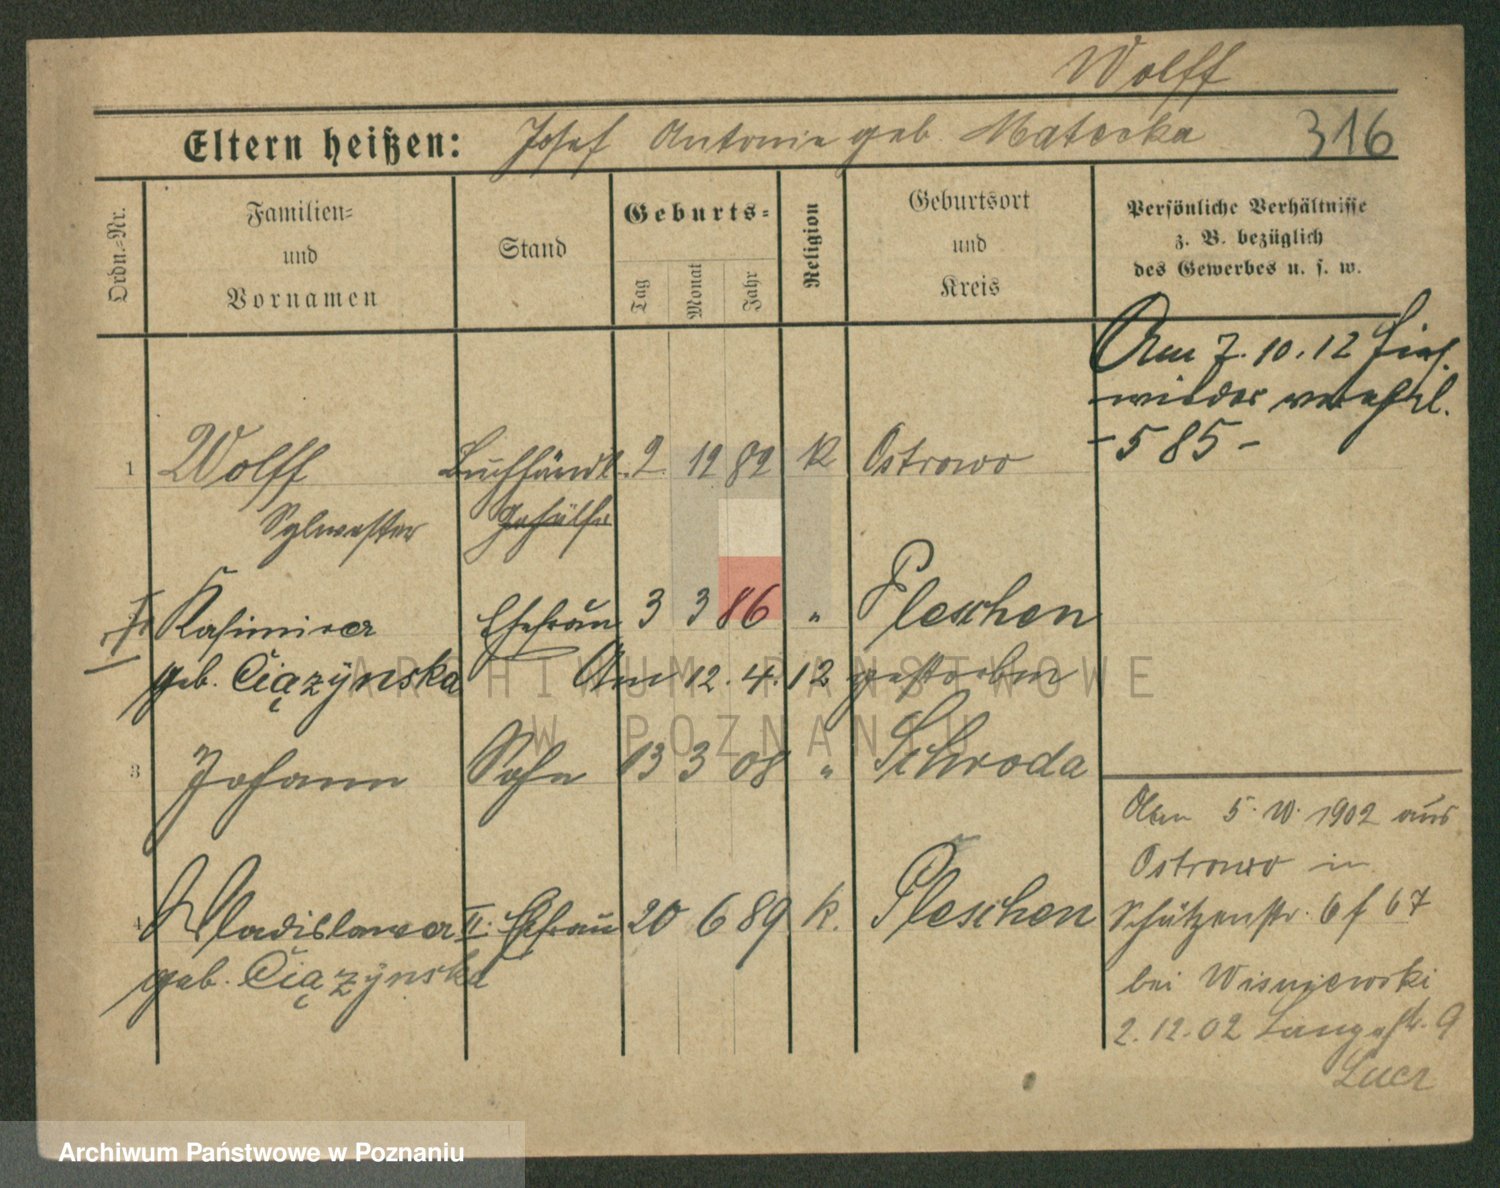 Wolff
Eltern heißen: Josef Antonie geb. Matecka 316
Ordn.-Nr.
Familien-
und
Vornamen
Stand
Geburts-
Tag Monat Jahr
Religion
Geburtsort
und
Kreis
Persönliche Verhältnisse
z. B. bezüglich
des Gewerbes u. s. w.
Am 7. 10. 12 hier
wieder verehel.
- 585 -
1 Wolff Buchhändl. 2 12 82 k Ostrowo
Sylwester Gehülfe
Kasimira Ehefrau 3 3 86 " Pleschen
geb. Ciązynska Am 12. 4. 12 gestorben
3 Johann Sohn 13 3 08 " Schroda
4 Wladislawa II. Ehefrau 20 6 89 k. Pleschen
geb. Ciązynska
5. 10. 1902 aus
Ostrowo in
Schützenstr. 6 f 67
bei Wisniewski
2. 12. 02 Langestr. 9
ARCHIWUM PAŃSTWOWE
W POZNANIU
Archiwum Państwowe w Poznaniu